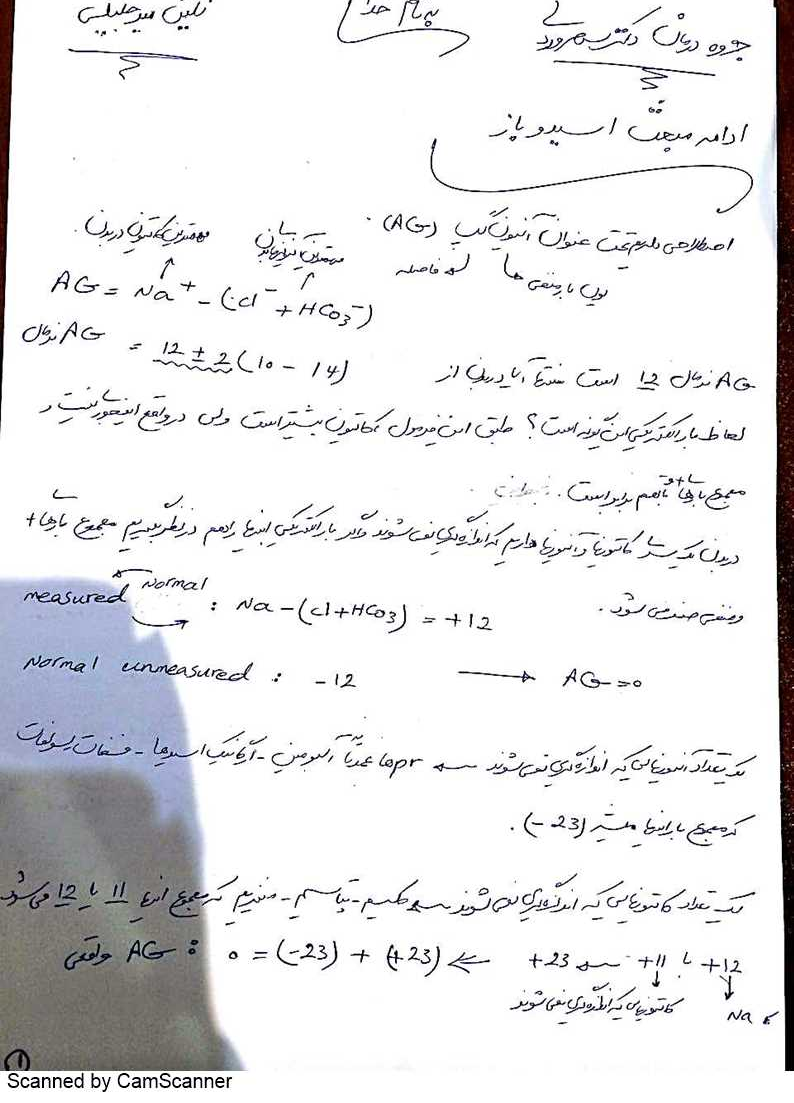 به نام خدا
جزوه درمان دکتر سهرورد
ادامه مبحث اسید و باز
اصطلاحی داریم تحت عنوان آنیون گپ (AG).
یون با بار منفی فاصله مهمترین کاتیون در بدن.
AG = Na⁺ - (Cl⁻ + HCO₃⁻)
AG نرمال = 12 ± 2 (10 - 14)
AG نرمال 12 است منتها آیا در بدن از
لحاظ بار الکتریکی این گونه است؟ طبق این فرمول کاتیون بیشتر است ولی در واقع اینجور نیست و
مجموع بارها + و - با هم برابر است.
در بدن یک سری کاتیونها و آنیونها داریم که اندازه گیری نمی شوند و اگر بار الکتریکی اینها را هم در نظر بگیریم مجموع بارها +
و منفی صفر می شود.
measured Normal : Na - (Cl + HCO3) = +12
Normal unmeasured : -12 → AG = 0
یک تعداد آنیونهایی که اندازه گیری نمی شوند → pr ها عمدتاً آلبومین - ارگانیک اسیدها - فسفات - سولفات
که مجموع بار اینها میشه (-23).
یک تعداد کاتیونهایی که اندازه گیری نمی شوند → کلسیم - پتاسیم - منیزیم که مجموع اینها 11 یا 12 می شود
+12 با +11 → +23 ⇐ (+23) + (-23) = 0 : AG واقعی
Na کاتیونهایی که اندازه گیری نمی شوند
1
Scanned by CamScanner